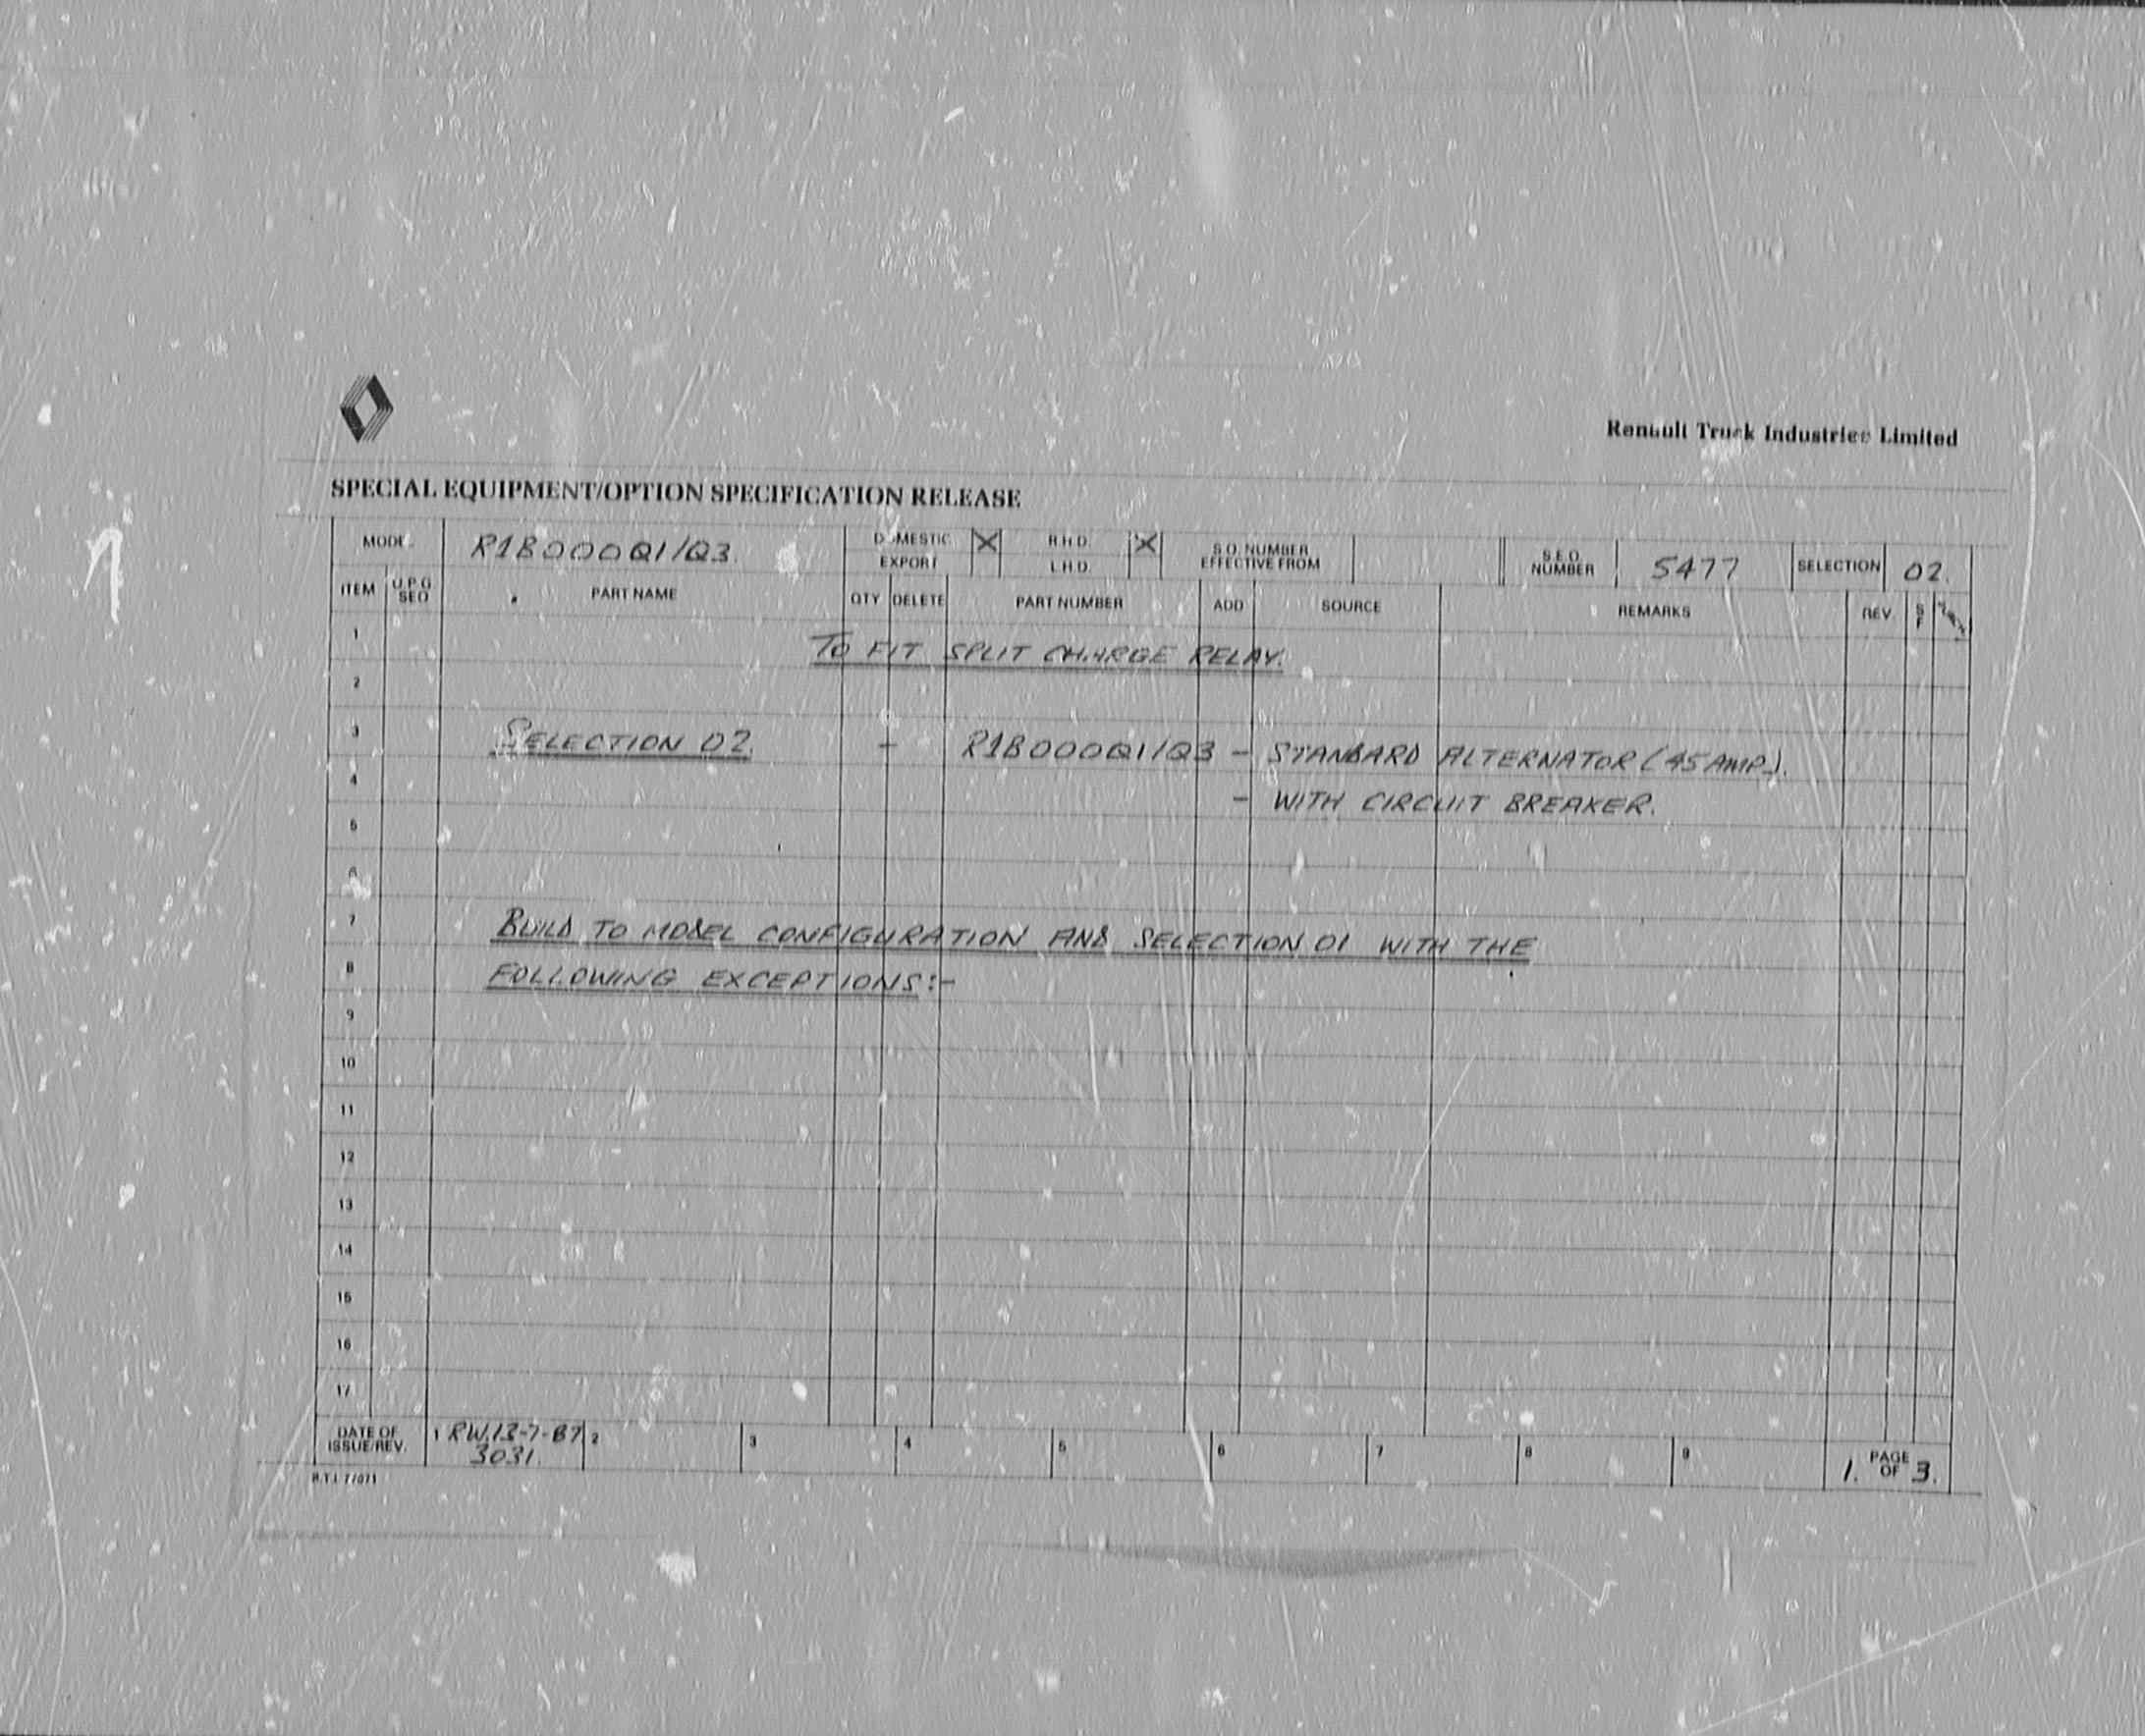 Renault Truck Industries Limited
SPECIAL EQUIPMENT/OPTION SPECIFICATION RELEASE
MODEL R1B000Q1/Q3. DOMESTIC X R.H.D. X S.O. NUMBER EFFECTIVE FROM S.E.O. NUMBER 5477 SELECTION 02.
EXPORT L.H.D.
ITEM U.P.G. SEQ PART NAME QTY DELETE PART NUMBER ADD SOURCE REMARKS REV. S F
1 TO FIT SPLIT CHARGE RELAY.
2
3 SELECTION 02. - R1B000Q1/Q3 - STANDARD ALTERNATOR (45 AMP.).
4 - WITH CIRCUIT BREAKER.
5
6
7 BUILD TO MODEL CONFIGURATION AND SELECTION 01 WITH THE
8 FOLLOWING EXCEPTIONS:-
9
10
11
12
13
14
15
16
17
DATE OF ISSUE/REV. 1 RW.13-7-87 2 3 4 5 6 7 8 9 1. PAGE OF 3.
3031.
R.T.I. 77071